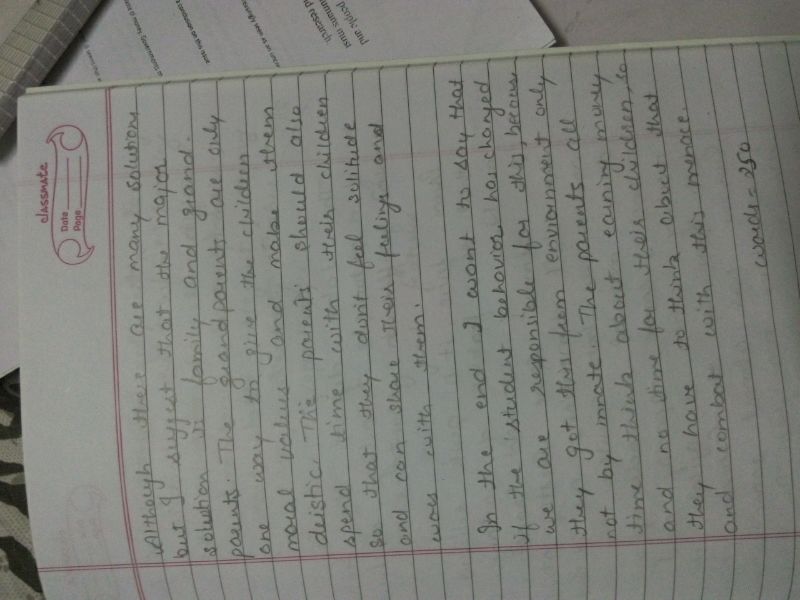 classmate
Date
Page
Although there are many solution
but I suggest that the major
solution is family and grand.
parents. The grandparents are only
one way to give the children
moral values and make them
deistic. The parents should also
spend time with their children
so that they don't feel solitude
and can share their feelings and
ways with them.
In the end I want to say that
if the student behavior has changed
we are responsible for this, because
they got this from environment only
not by innate. The parents all
time think about earning money
and no time for their children, so
they have to think about that
and combat with this menace.
words = 250
people and
humans must
nd research